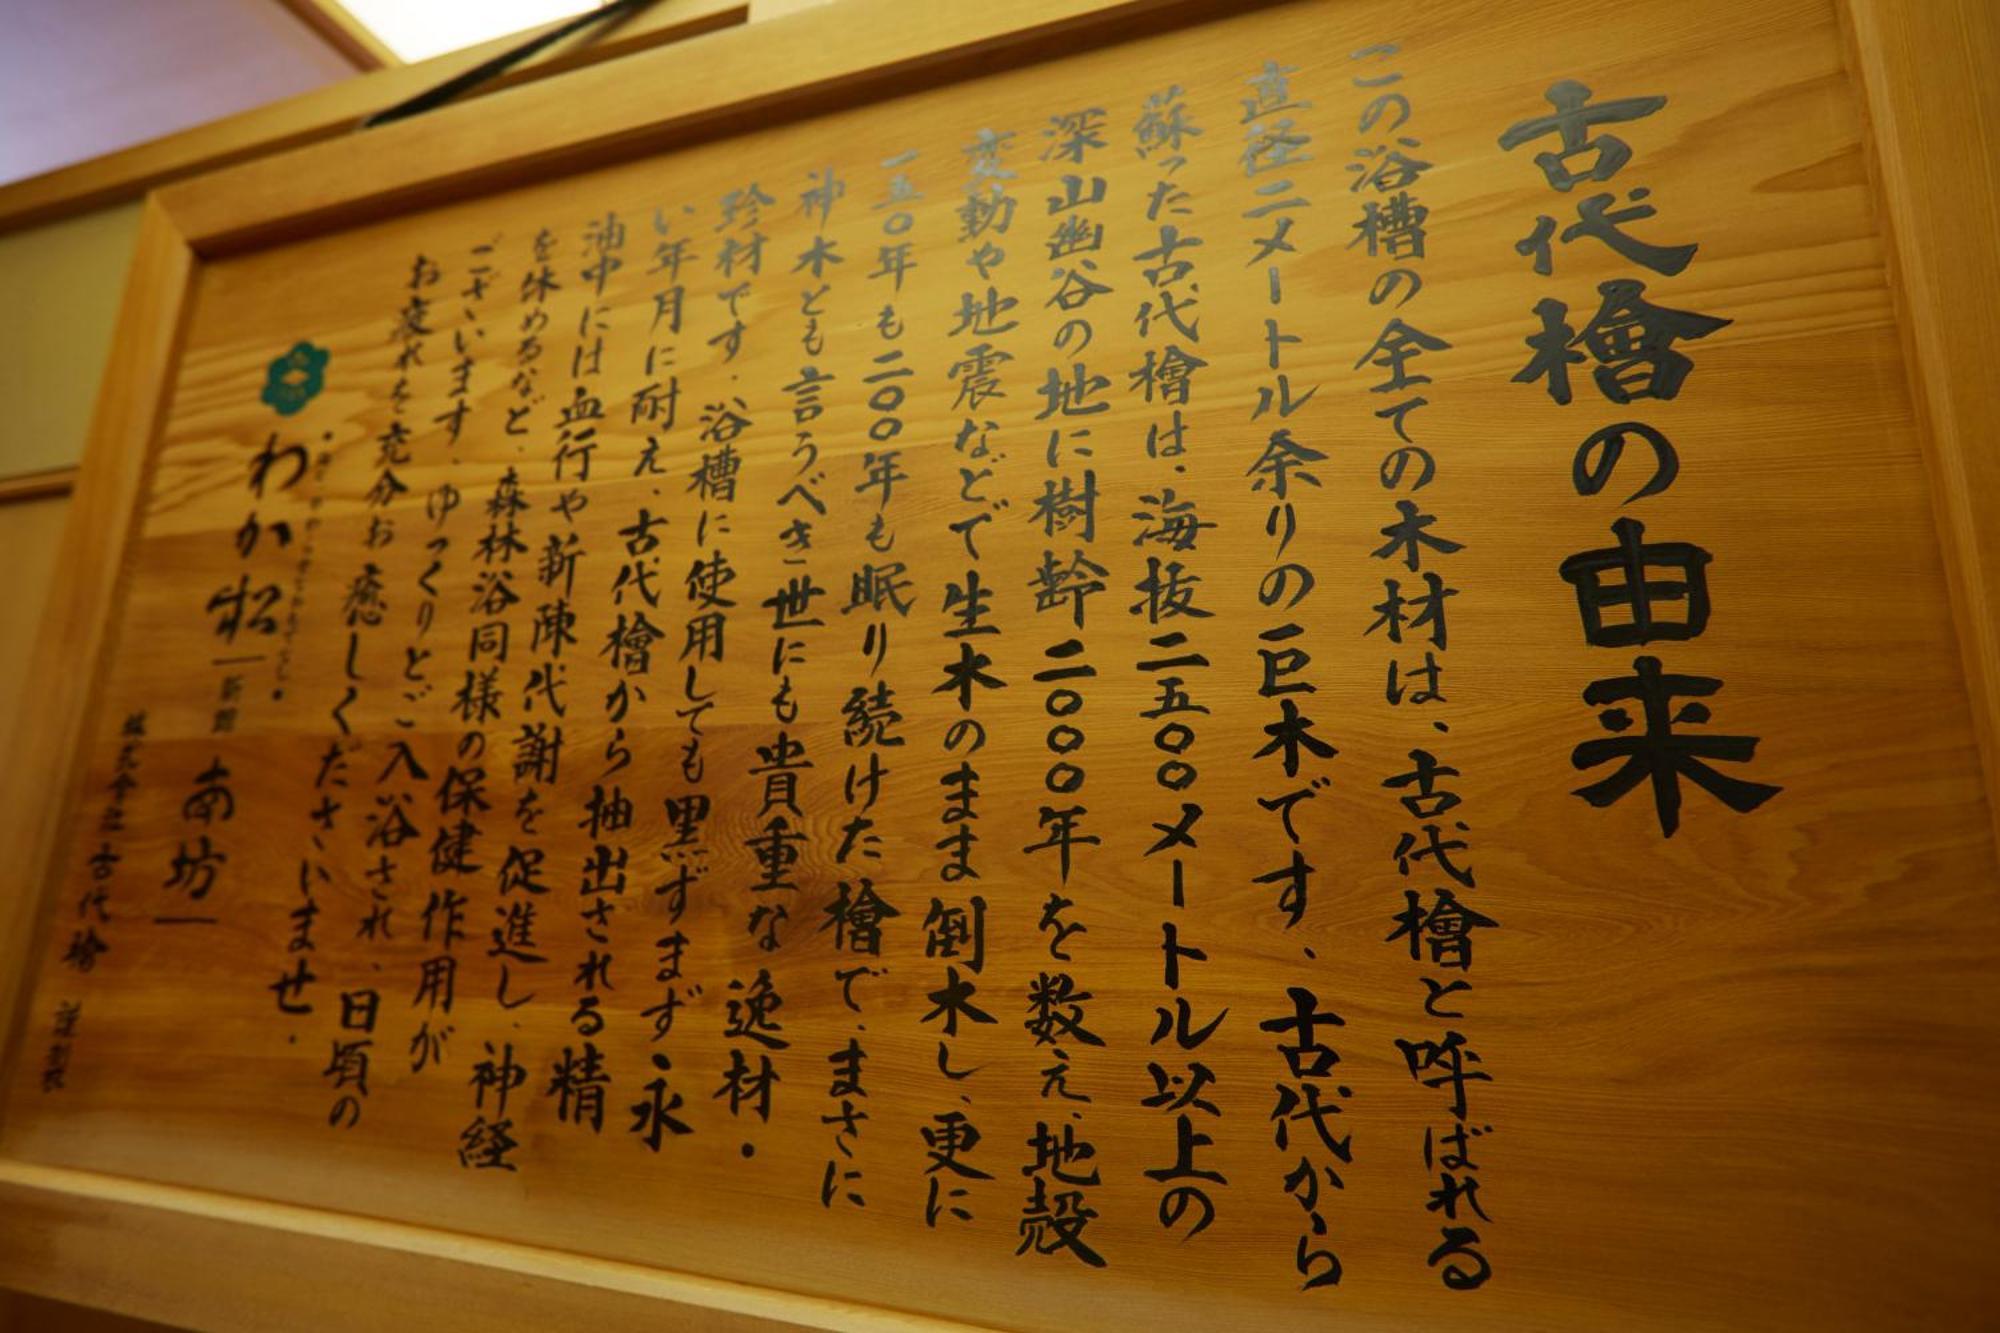 古代檜の由来
この浴槽の全ての木材は、古代檜と呼ばれる
直径二メートル余りの巨木です。古代から
蘇った古代檜は、海抜二五〇〇メートル以上の
深山幽谷の地に樹齢二〇〇〇年を数え、地殻
変動や地震などで生木のまま倒木し、更に
一五〇年も二〇〇年も眠り続けた檜で、まさに
神木とも言うべき世にも貴重な逸材・
珍材です。浴槽に使用しても黒ずまず、永
い年月に耐え、古代檜から抽出される精
油中には血行や新陳代謝を促進し、神経
を休めるなど、森林浴同様の保健作用が
ございます。ゆっくりとご入浴され、日頃の
お疲れを充分お癒しくださいませ。
わか松 新館 南坊
株式会社 古代檜 謹製